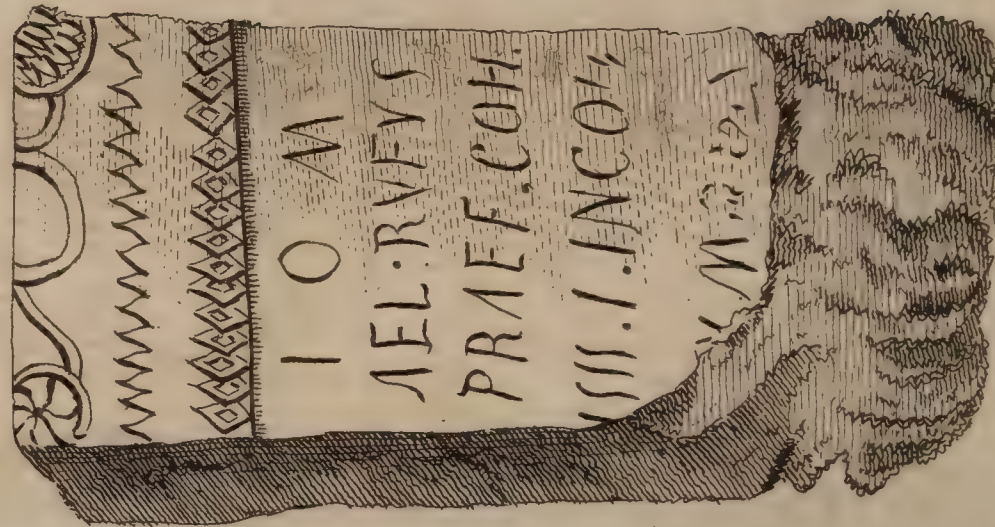 I O M
AEL·RVFVS
PRAEF.COH.
IIII.LINCON,